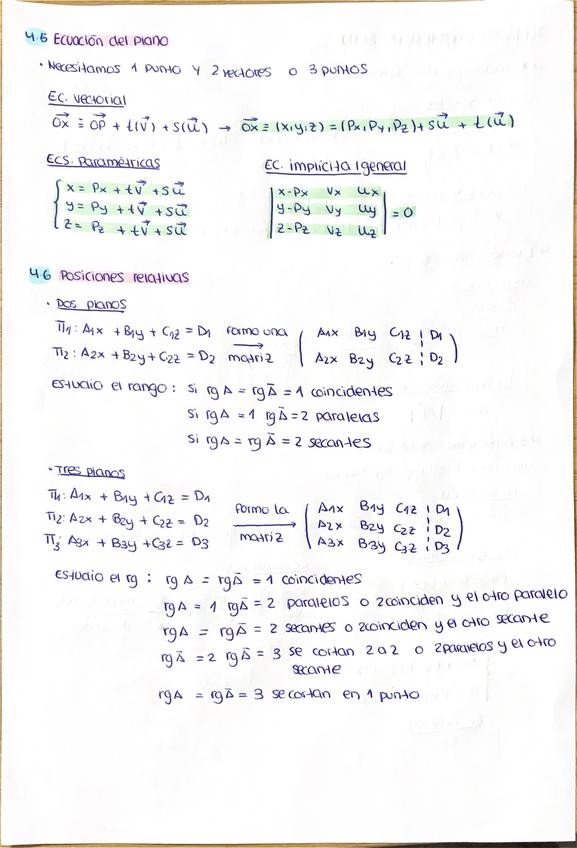 4.5 Ecuación del plano
• Necesitamos 1 punto y 2 vectores o 3 puntos
Ec. vectorial
OX⃗ ≡ OP⃗ + t(v⃗) + s(u⃗) → OX⃗ ≡ (x,y,z) = (Px, Py, Pz) + su⃗ + t(u⃗)
Ecs. Paramétricas Ec. implícita / general
x = Px + tv⃗ + su⃗
y = Py + tv⃗ + su⃗
z = Pz + tv⃗ + su⃗
| x-Px Vx Ux |
| y-Py Vy Uy | = 0
| z-Pz Vz Uz |
4.6 Posiciones relativas
• Dos planos
π1: A1x + B1y + C1z = D1 formo una ( A1x B1y C1z ¦ D1 )
π2: A2x + B2y + C2z = D2 matriz → ( A2x B2y C2z ¦ D2 )
Estudio el rango: si rg A = rg Ā = 1 coincidentes
si rg A = 1 rg Ā = 2 paralelas
si rg A = rg Ā = 2 secantes
• Tres planos
π1: A1x + B1y + C1z = D1
π2: A2x + B2y + C2z = D2
π3: A3x + B3y + C3z = D3
formo la → matriz
( A1x B1y C1z ¦ D1 )
( A2x B2y C2z ¦ D2 )
( A3x B3y C3z ¦ D3 )
Estudio el rg: rg A = rg Ā = 1 coincidentes
rg A = 1 rg Ā = 2 paralelos o 2 coinciden y el otro paralelo
rg A = rg Ā = 2 secantes o 2 coinciden y el otro secante
rg Ā = 2 rg Ā = 3 se cortan 2 a 2 o 2 paralelos y el otro
secante
rg A = rg Ā = 3 se cortan en 1 punto